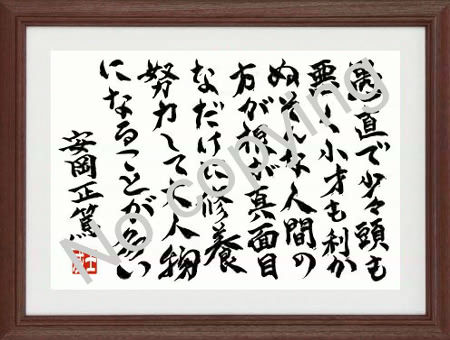 愚直で少々頭も
悪く小才も利か
ぬそんな人間の
方が根が真面目
なだけに修養
努力して大人物
になることが多い
安岡正篤
No copying